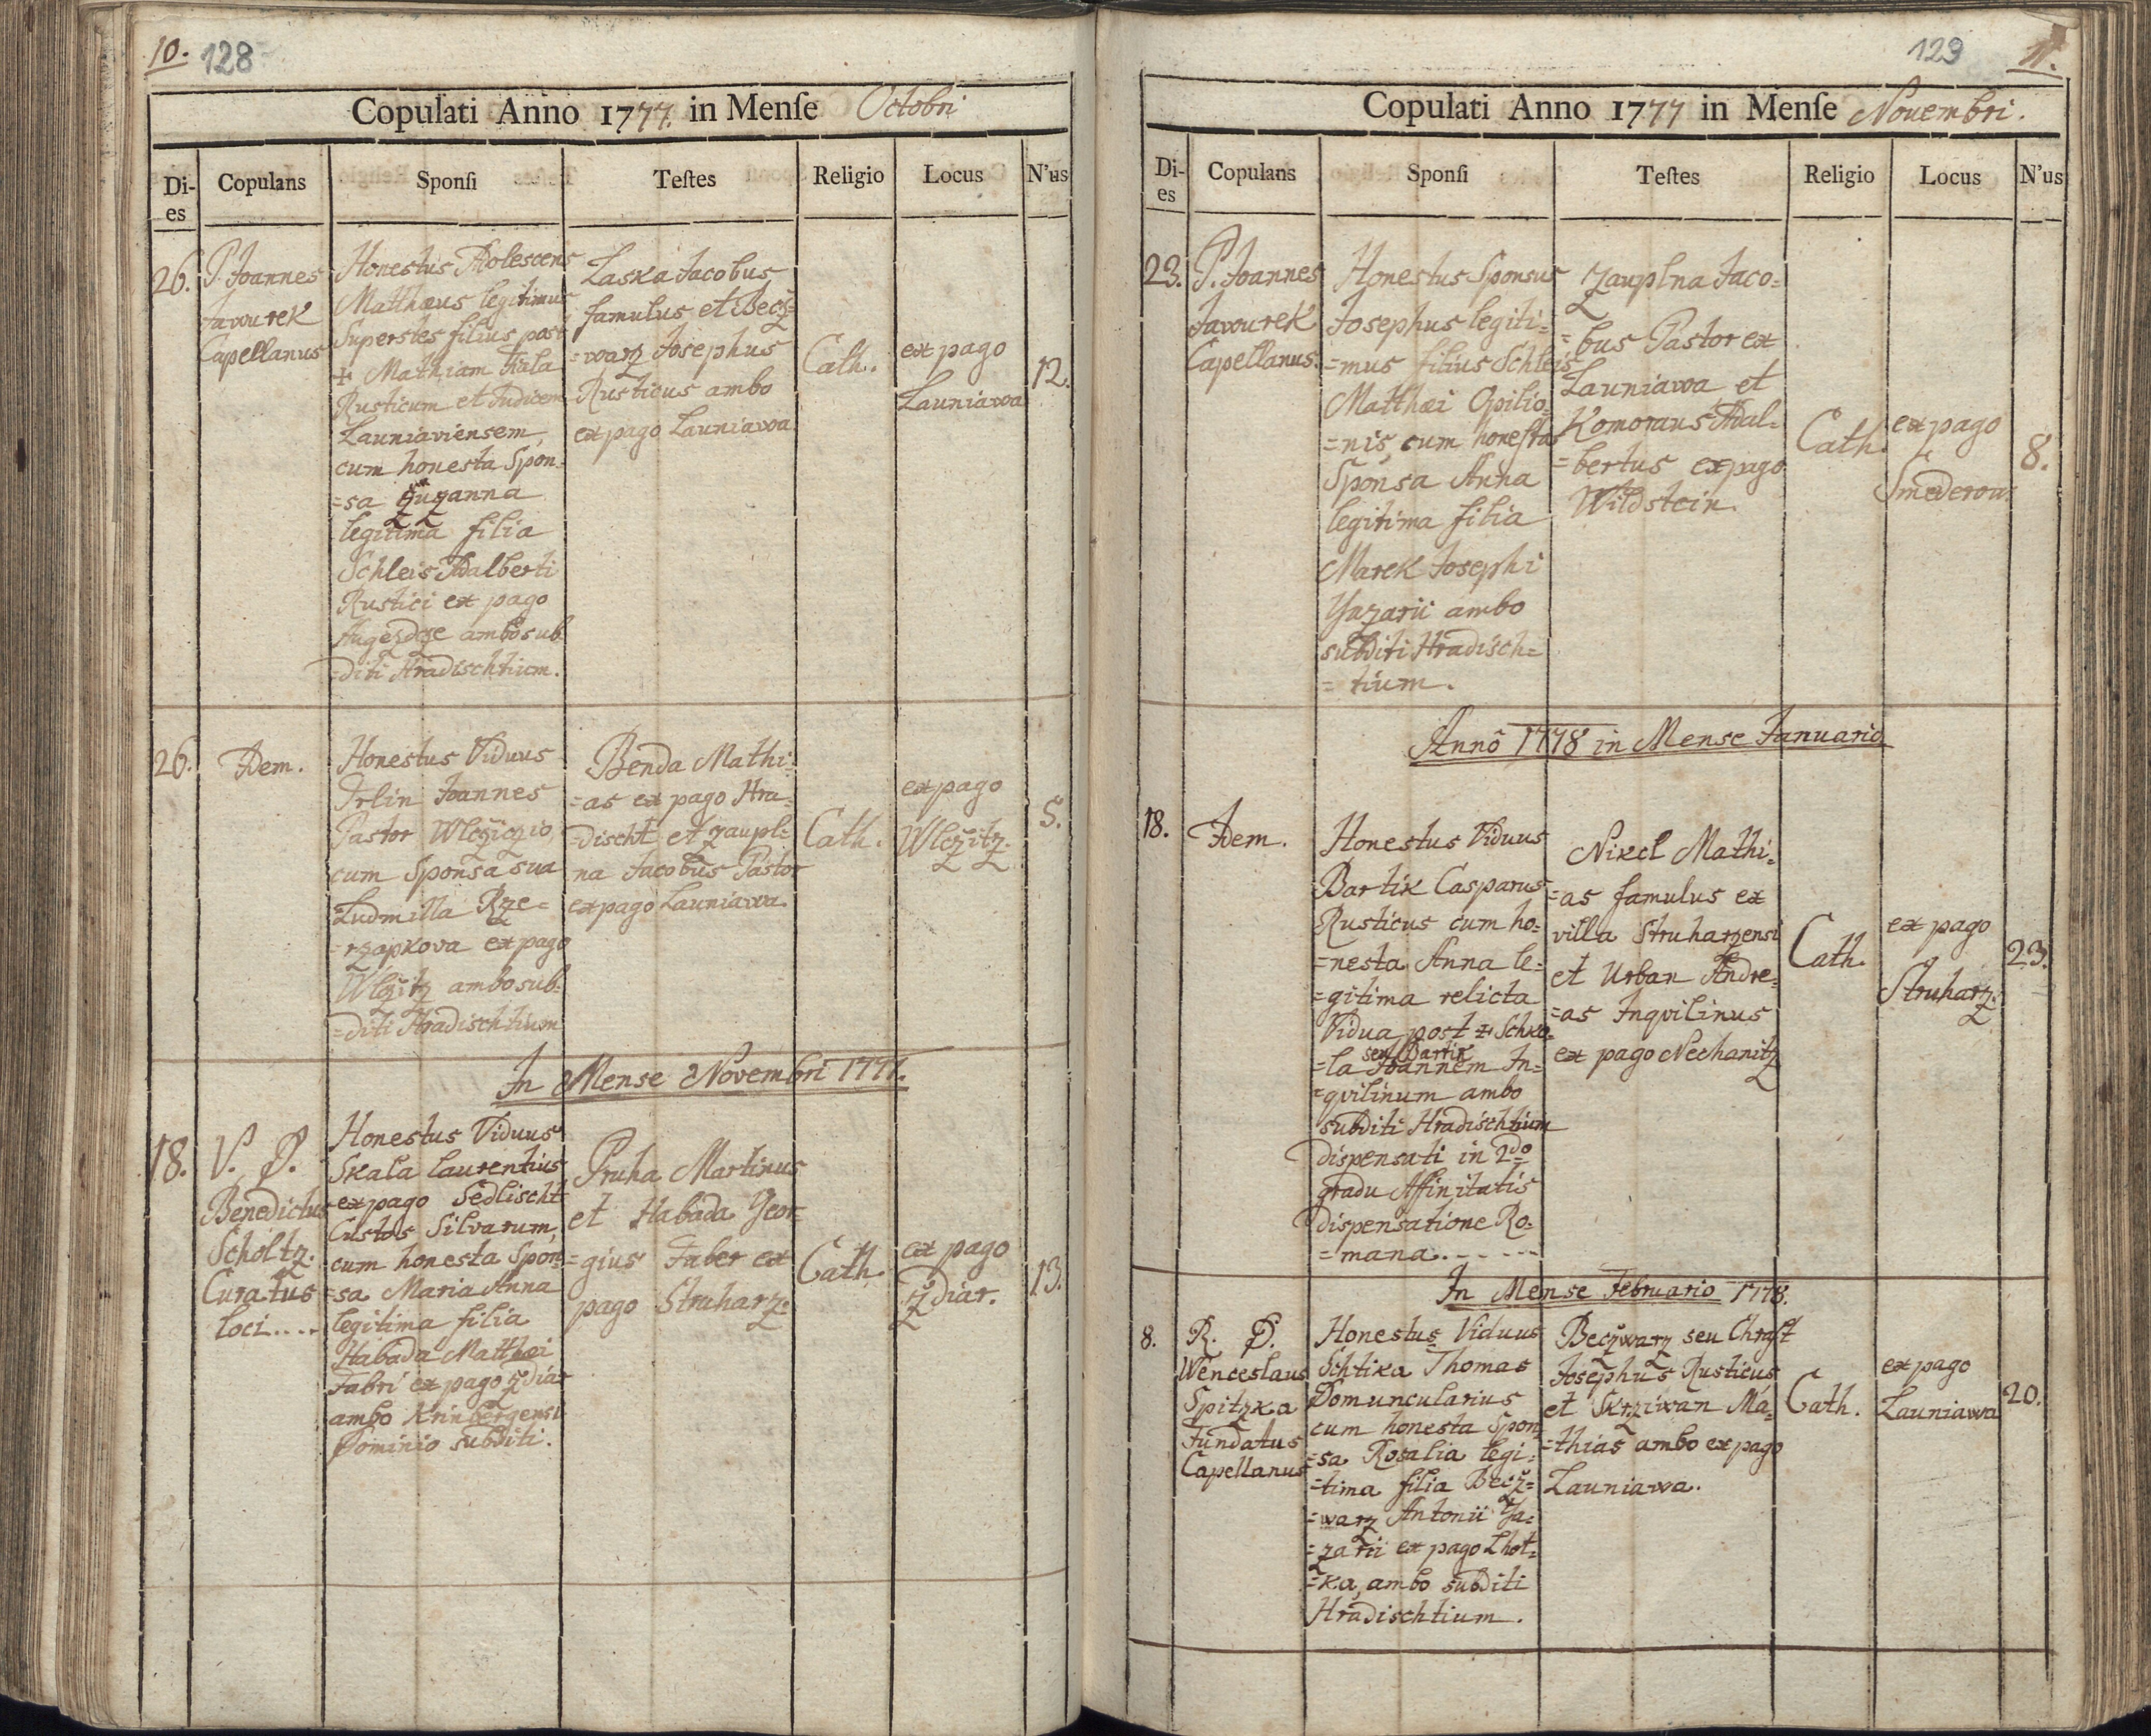 10. 128
Copulati Anno 1777. in Menſe Octobri
Di-es Copulans Sponſi Teſtes Religio Locus N'us
26.
P. Joannes
Jawurek
Capellanus
Honestus Adolescens
Matthæus legitimus
Superstes filius post
+ Mathiam Fiala
Rusticum et Judicem
Launiaviensem,
cum honesta Spon=
=sa Zuzanna
legitima filia
Schleis Adalberti
Rustici ex pago
Augezdcze ambo sub
=diti Hradischtium.
Laska Jacobus
famulus et Becz=
=warz Josephus
Rusticus ambo
ex pago Launiawa
Cath.
ex pago
Launiawa
12.
26.
Idem.
Honestus Viduus
Irlin Joannes
Pastor Wlcziczio,
cum Sponsa sua
Ludmilla Rze=
=rzapkova ex pago
Wlczitz ambo sub=
=diti Hradischtium
Benda Mathi=
=as ex pago Hra=
=discht et zaupl=
na Jacobus Pastor
ex pago Launiawa.
Cath.
ex pago
Wlczitz.
5.
In Mense Novembri 1777.
18.
V. D.
Benedictus
Scholtz.
Curatus
loci....
Honestus Viduus
Skala laurentius
ex pago Sedlischt
Custos Silvarum,
cum honesta Spon=
=sa Maria Anna
legitima filia
Habada Matthæi
Fabri ex pago zdiar
ambo Krinbergensi
Dominio subditi.
Pruha Martinus
et Habada Geor=
=gius Faber ex
pago Struharz.
Cath.
ex pago
Zdiar.
13.
129 11.
Copulati Anno 1777 in Menſe Nouembri.
Di-es Copulans Sponſi Teſtes Religio Locus N'us
23.
P. Joannes
Jawurek
Capellanus.
Honestus Sponsus
Josephus legiti=
=mus filius Schleis
Matthæi Opilio=
=nis, cum honesta
Sponsa Anna
legitima filia
Marek Josephi
Yazarii ambo
subditi Hradisch=
=tium.
Zauplna Jaco=
=bus Pastor ex
Launiawa et
Komoraus Adal=
=bertus ex pago
Wildstein.
Cath.
ex pago
Smederow.
8.
Annô 1778 in Mense Januario
18.
Idem.
Honestus Viduus
Bartik Casparus
Rusticus cum ho=
=nesta Anna le=
=gitima relicta
Vidua post + Schko=
seu Bartik
=la Joannem In=
=qvilinum ambo
subditi Hradischtium
dispensati in 2do
gradu Affinitatis
dispensatione Ro=
=mana.------
Nikel Mathi=
=as famulus ex
villa Struharzensi
et Urban Andre=
=as Inqvilinus
ex pago Nechanitz
Cath.
ex pago
Struharz.
23.
In Mense Februario 1778.
8.
R. D.
Wenceslaus
Spitzka
Fundatus
Capellanus
Honestus Viduus
Schtika Thomas
Domuncularius
cum honesta Spon
=sa Rosalia legi=
=tima filia Becz=
=warz Antonii Ya=
=zarii ex pago Lhot=
=ka, ambo subditi
Hradischtium.
Beczwarz seu Chraft
Josephus Rusticus
et Skrziwan Ma=
=thias ambo ex pago
Launiawa.
Cath.
ex pago
Launiawa
20.